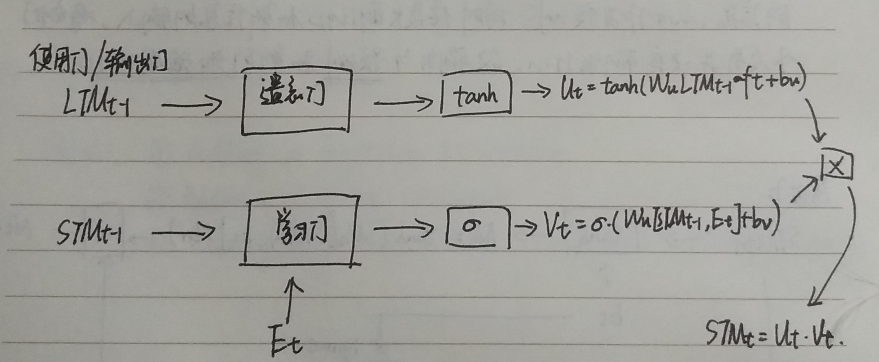 使用门/输出门
LTMt-1 → 遗忘门 → tanh → Ut = tanh(Wu LTMt-1·ft + bu)
×
STMt-1 → 学习门 → σ → Vt = σ·(Wu[STMt-1, Et] + bv)
Et
STMt = Ut·Vt.